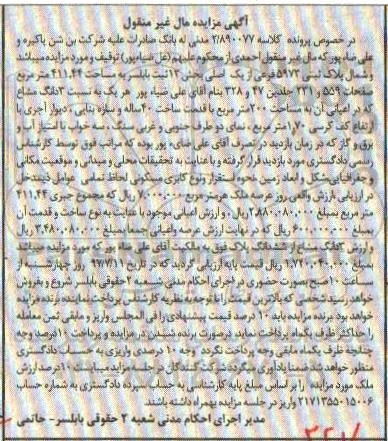 آگهی مزایده مال غیر منقول
در خصوص پرونده کلاسه ۲/۸۹۰۰۷۷ مدنی له بانک صادرات علیه شرکت بن شن پاکیزه و
علی ضیاء پور که مال غیر منقول احدی از محکوم علیهم (علی ضیاءپور) توقیف و مورد مزایده میباشد
و شمال پلاک ثبتی ۵۹۷۳ فرعی از یک اصلی بخش ۱۲ ثبت بابلسر به مساحت ۴۱۱.۴۴ متر مربع
صفحات ۵۵۹ و ۲۳۱ جلدین ۴۷ و ۳۲۸ بنام آقای علی ضیاء پور هر یک به نسبت ۳ دانگ مشاع
که در اعیانی آن به مساحت ۲۰۰ متر مربع با قدمت ساخت ۴۰ ساله و سازه بنایی - دیوار آجری با
ارتفاع کف کرسی ۷۰/۱ متر مربع نمای دو طرف جنوبی و غربی سنگ، سه خواب با امتیاز آب و
برق و گاز که در زمان بازدید در تصرف آقای علی ضیاء پور بوده که مراتب فوق توسط کارشناس
رسمی دادگستری مورد بازدید قرار گرفته و با عنایت به تحقیقات محلی و میدانی و موقعیت مکانی
و جغرافیایی شکل و ابعاد زمین نحوه استقرار ونوع کاربری مسکونی لحاظ تمامی عوامل ذیمدخل
در ارزیابی ارزش واقعی روز عرصه ملک هر متر مربع ریال که مجموع جبری ۴۱۱.۴۴
متر مربع بمبلغ ریال و ارزش اعیانی موجود با عنایت به نوع ساخت و قدمت آن
بمبلغ ریال که در نهایت ارزش عرصه واعیانی جمعا بمبلغ ریال
و ارزش ۳ دانگ مشاع از ششدانگ پلاک فوق به مالکیت آقای علی ضیاء پور که مورد مزایده میباشد
بمبلغ ریال قیمت پایه ارزیابی گردید که در تاریخ ۹۷/۷/۱۱ روز چهارشنبه از
ساعت ۱۰ صبح بصورت حضوری در اجرای احکام مدنی شعبه ۲ حقوقی بابلسر شروع و بفروش
خواهد رسید شخصی که بالاترین قیمت را با توجه به نظریه کارشناس پرداخت نماید برنده مزایده
خواهد بود برنده مزایده باید ۱۰ درصد قیمت پیشنهادی را فی المجلس واریز و مابقی ثمن معامله
را حداکثر ظرف یکماه پرداخت نماید درصورت برنده شدن در مزایده و پرداخت ۱۰ درصد وجه
چنانچه ظرف یکماه مابقی وجه پرداخت نگردد وجه ۱۰ درصدی واریزی به حساب دادگستری
منظور خواهد شد ضمنا یادآوری میگردد شرکت کنندگان در جلسه مزاید میبایست ۱۰ درصد ارزش
ملک مورد مزایده را بر اساس مبلغ پایه کارشناسی به حساب سپرده دادگستری به شماره حساب
واریز در جلسه مزایده بهمراه داشته باشند.
مدیر اجرای احکام مدنی شعبه ۲ حقوقی بابلسر- حاتمی